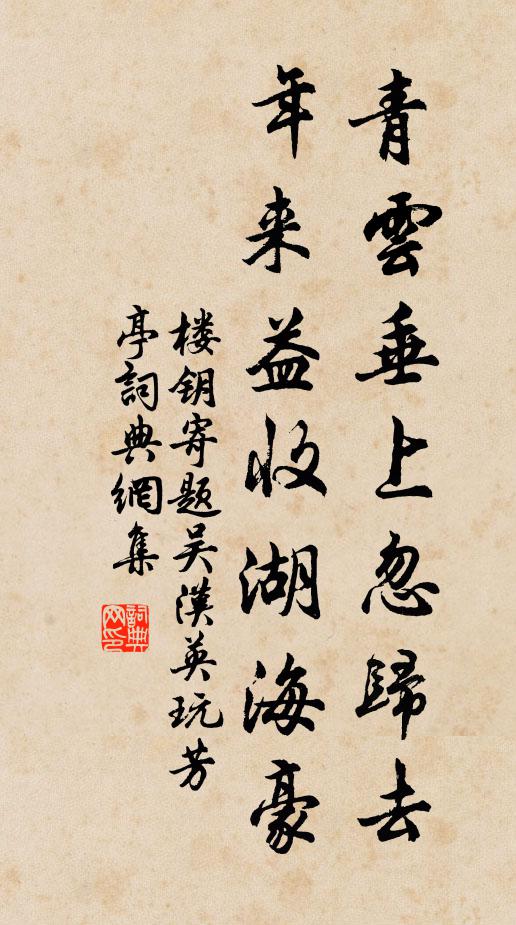 青雲垂上忽歸去
年来益收湖海豪
楼钥寄题吴漢英玩芳
亭詞典網集
詞典網印